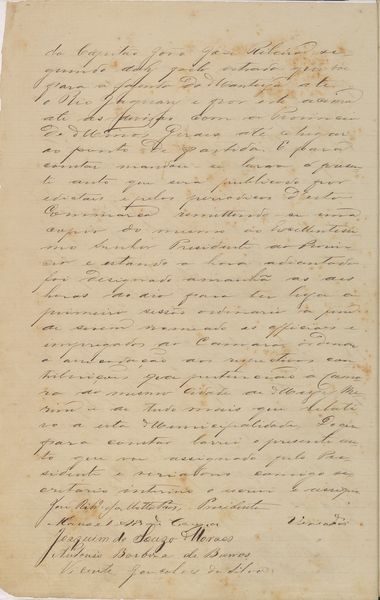 do Capitão João José Ribeiro, se
guindo dahi pela estrada que vai
para a fazenda da até
o Rio Jaguary e por este acima
até as divisas com a Provincia
de Minas Geraes até chegar
ao ponto de partida. E para
constar mandou-se lavrar o presen
te auto que será publicado por
editaes e pelos periodicos d'esta
Commarca remettendo-se uma
copia do mesmo ao Excellentis
simo Senhor Presidente da Provin
cia e estando a hora adiantada
foi designado amanhã as dez
horas do dia para ter lugar a
primeira sessão ordinaria a fim
de serem nomeado os officiaes e
empregados da Camara e
a arrecadação dos respectivos con
tribuições que pertencerão a Cama
ra da mesma Cidade de Mogy Mi
rim e de tudo mais que relati
vo a esta Municipalidade. Do que
para constar lavrei o presente au
to que vai assignado pelo Pre
sidente e vereadores comigo se
cretario interino o escrevi e assigno
Presidente
Manoel Vereador
Joaquim de Souza Moraes
Antonio Barbosa de Barros
Vicente Gonçalves da Silva